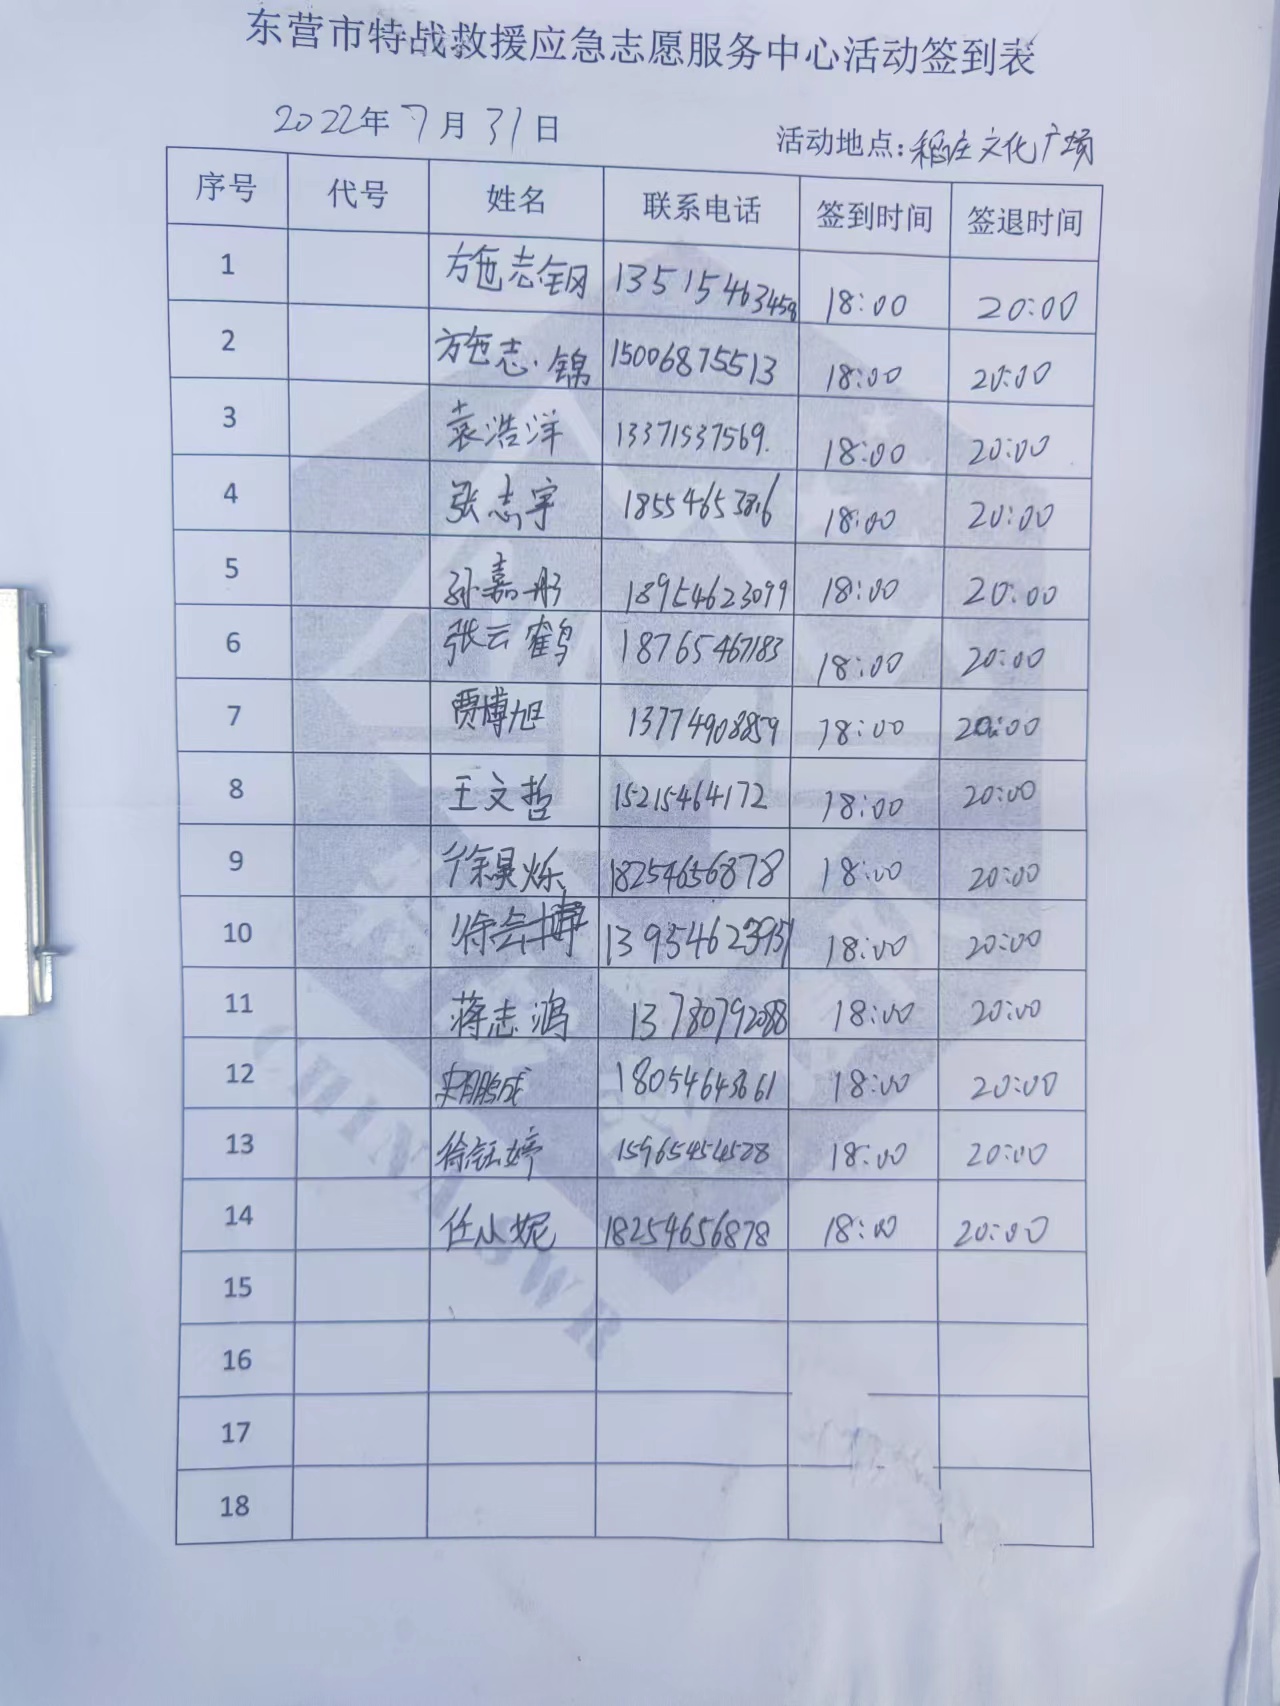 东营市特战救援应急志愿服务中心活动签到表
2022年 7月 31日 活动地点:稻庄文化广场
序号 代号 姓名 联系电话 签到时间 签退时间
1 施志钢 13515463458 18:00 20:00
2 施志锦 15006875513 18:00 20:00
3 袁浩洋 13371537569. 18:00 20:00
4 张志宇 18554653816 18:00 20:00
5 孙嘉彤 18954623099 18:00 20:00
6 张云鹤 18765467183 18:00 20:00
7 贾博旭 13774908859 18:00 20:00
8 王文哲 15215464172 18:00 20:00
9 徐昊烁 18254656878 18:00 20:00
10 徐会博 18:00 20:00
11 蒋志鸿 13780792088 18:00 20:00
12 18054643661 18:00 20:00
13 徐钰婷 15965454528 18:00 20:00
14 任小妮 18254656878 18:00 20:00
15
16
17
18
CHINA SWR